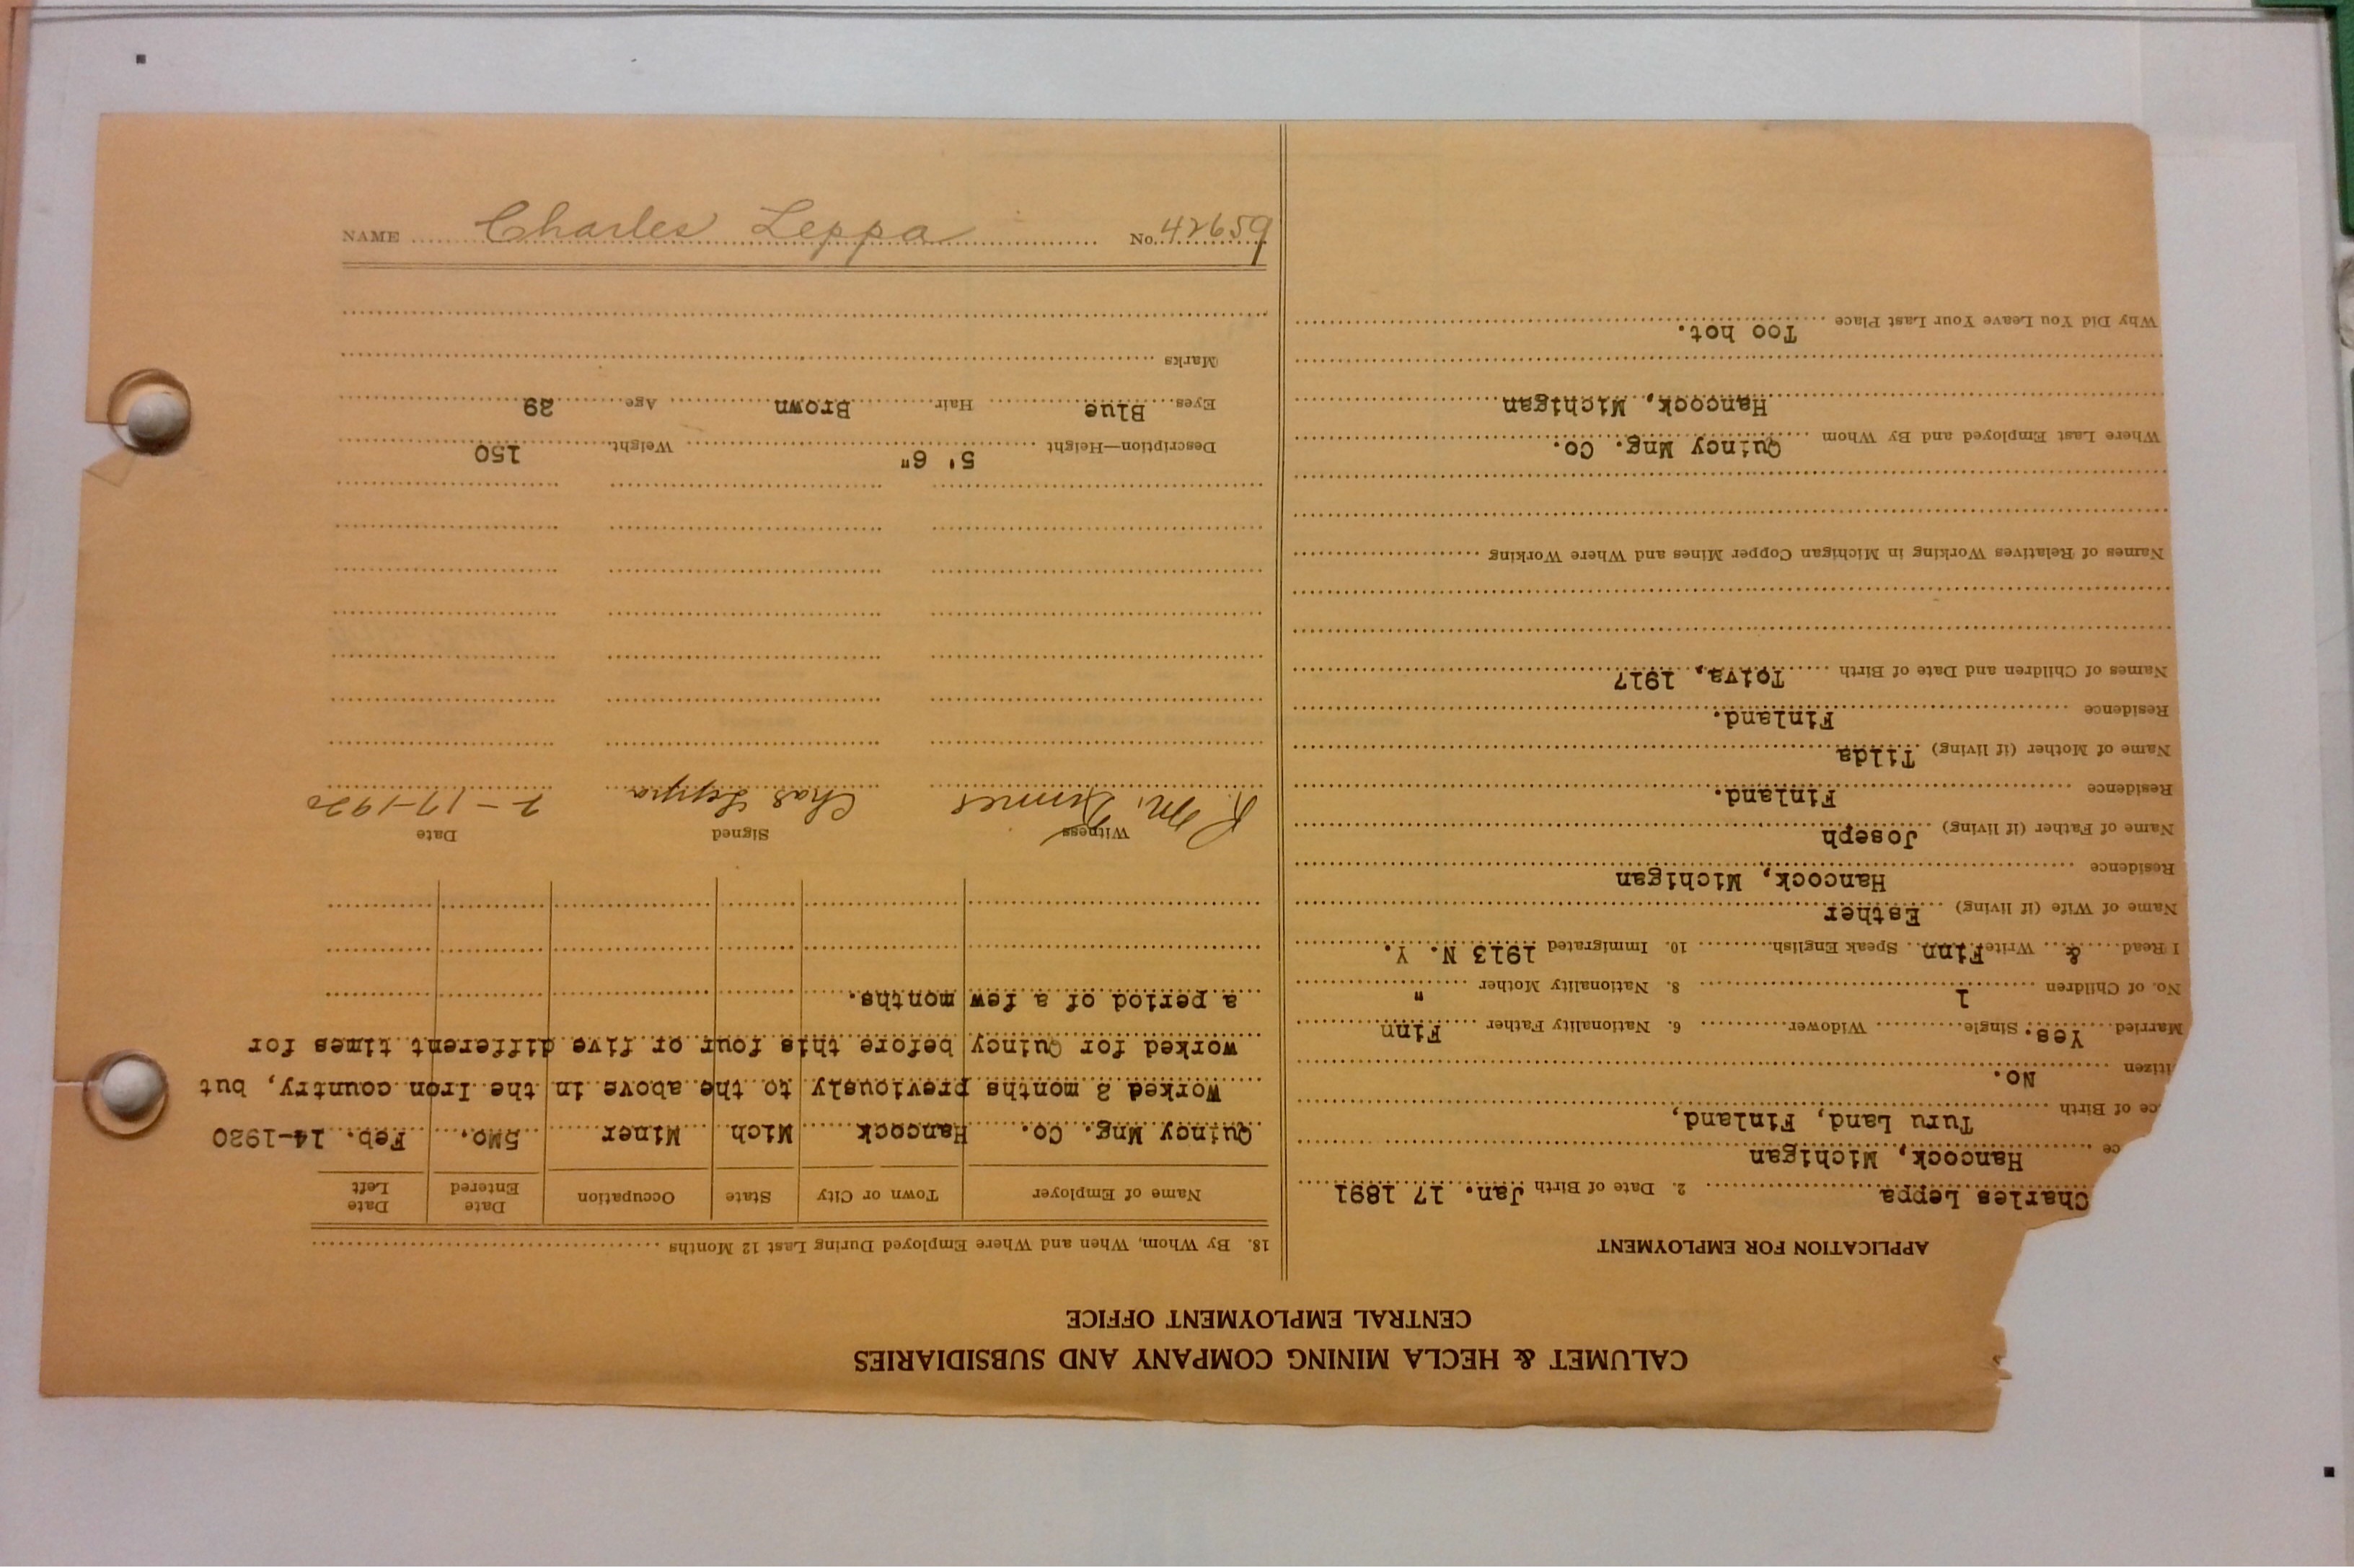 CALUMET & HECLA MINING COMPANY AND SUBSIDIARIES
CENTRAL EMPLOYMENT OFFICE
APPLICATION FOR EMPLOYMENT
Charles Leppa 2. Date of Birth Jan. 17 1891
ce Hancock, Michigan
ce of Birth Turu Land, Finland,
itizen No.
Married Yes. Single Widower 6. Nationality Father Finn
No. of Children 1 8. Nationality Mother "
I Read & Write Finn Speak English 10. Immigrated 1913 N. Y.
Name of Wife (if living) Esther
Residence Hancock, Michigan
Name of Father (if living) Joseph
Residence Finland.
Name of Mother (if living) Tilda
Residence Finland.
Names of Children and Date of Birth Toiva, 1917
Names of Relatives Working in Michigan Copper Mines and Where Working
Where Last Employed and By Whom Quincy Mng. Co.
Hancock, Michigan
Why Did You Leave Your Last Place Too hot.
18. By Whom, When and Where Employed During Last 12 Months
Name of Employer Town or City State Occupation Date Entered Date Left
Quincy Mng. Co. Hancock Mich Miner 5Mo. Feb. 14-1920
Worked 2 months previously to the above in the Iron country, but
worked for Quincy before this four or five different times for
a period of a few months.
Witness Signed Date
Chas Leppa 2-17-1920
Description—Height 5' 6" Weight 150
Eyes Blue Hair Brown Age 29
Marks
NAME Charles Leppa No. 42659